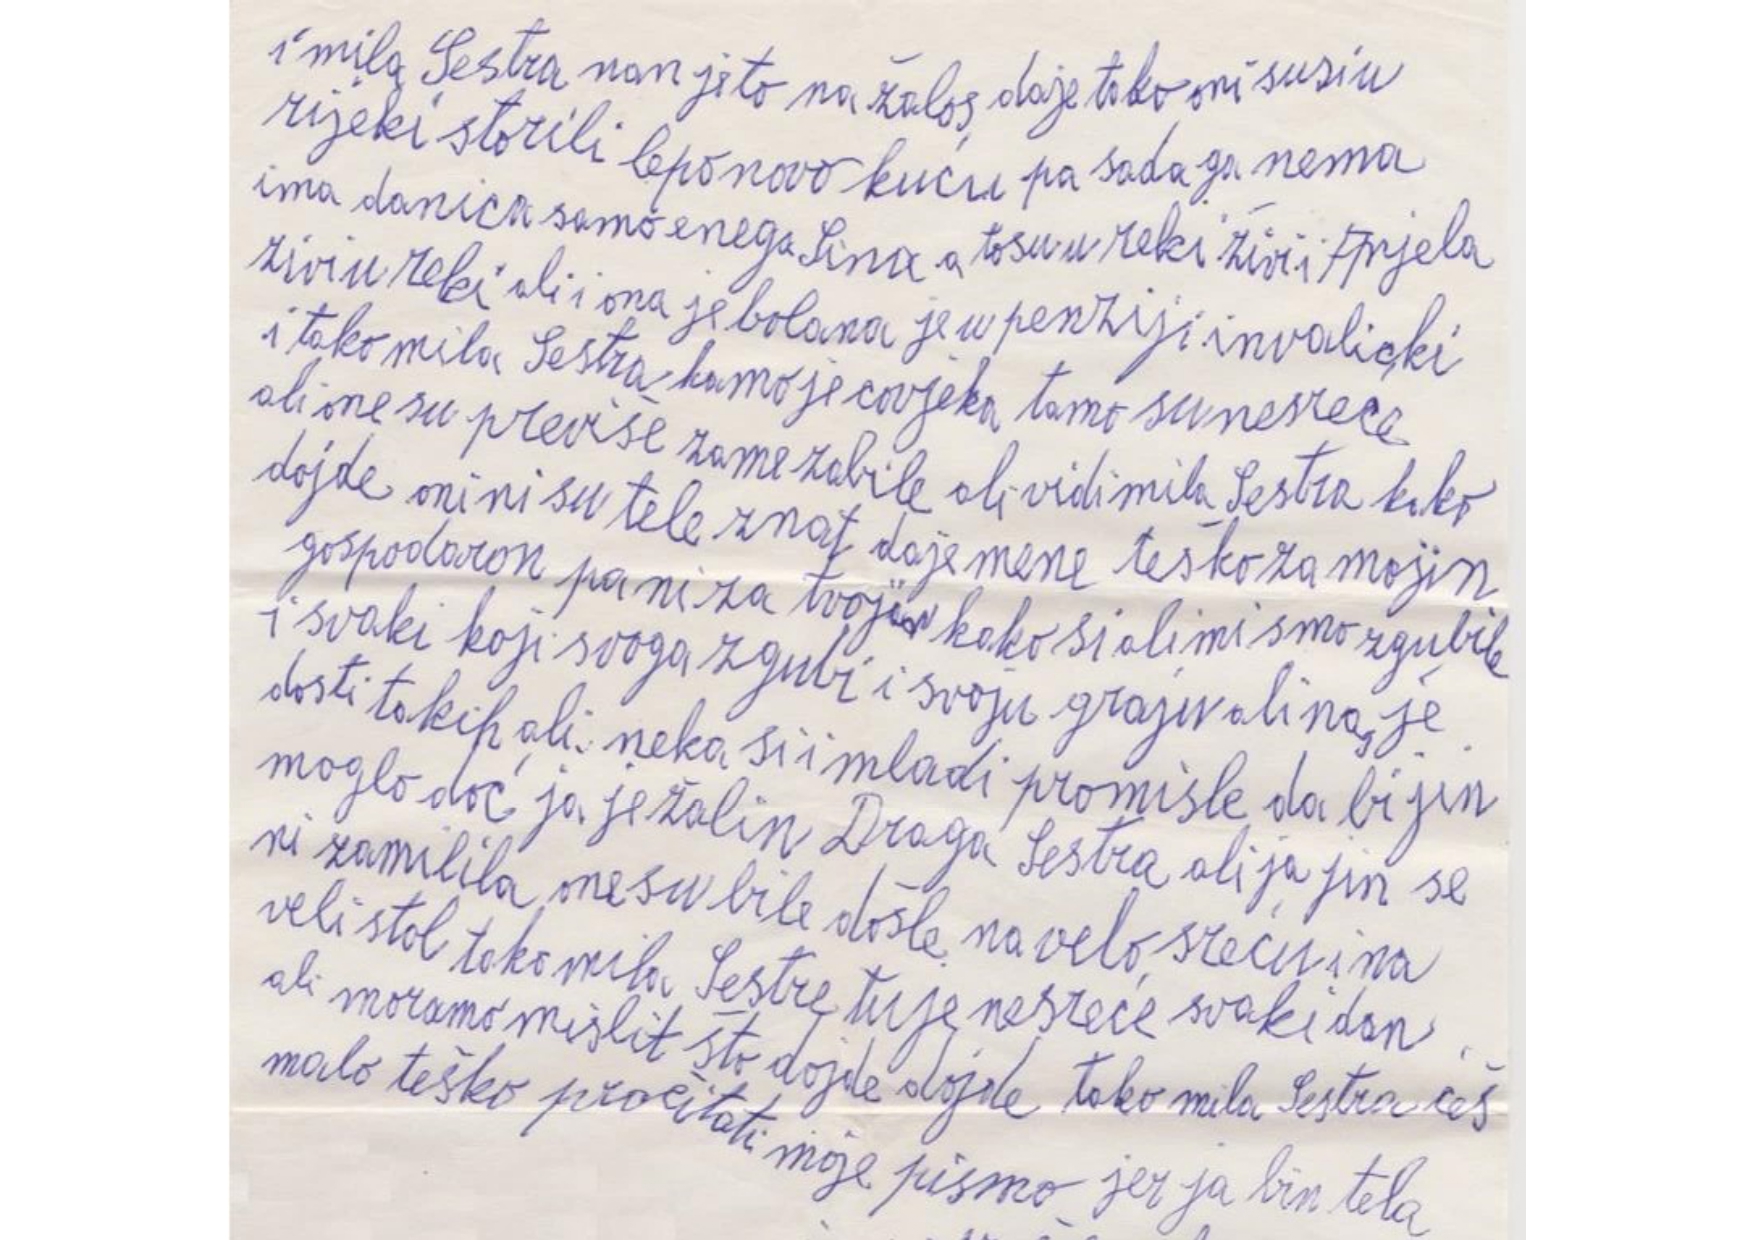 i mila Sestra nan je to na žalos, da je tako oni su si u
rijeki storili lepo novo kuću pa sada ga nema
ima danica samo enega Sina a to su u reki živi i
živi u reki ali i ona je bolana je u penziji invalicki
i tako mila Sestra kamo je covjeka tamo su nesreće
ali one su previše zamezabile ali vidi mila Sestra kako
dojde oni ni su tele znat da je mene teško za mojin
gospodaron pa ni za tvojin kako si ali mi smo zgubile
i svaki koji svoga zgubi i svoju graju ali nas je
dosti takih ali neka si i mladi promisle da bi jin
moglo doć ja je žalin Draga Sestra ali ja jin se
ni zamilila one su bile došle na velo sreću i na
veli stol tako mila Sestre tu je nesreće svaki dan
ali moramo mislit što dojde dojde tako mila Sestra ćeš
malo teško pročitati moje pismo jer ja bin tela